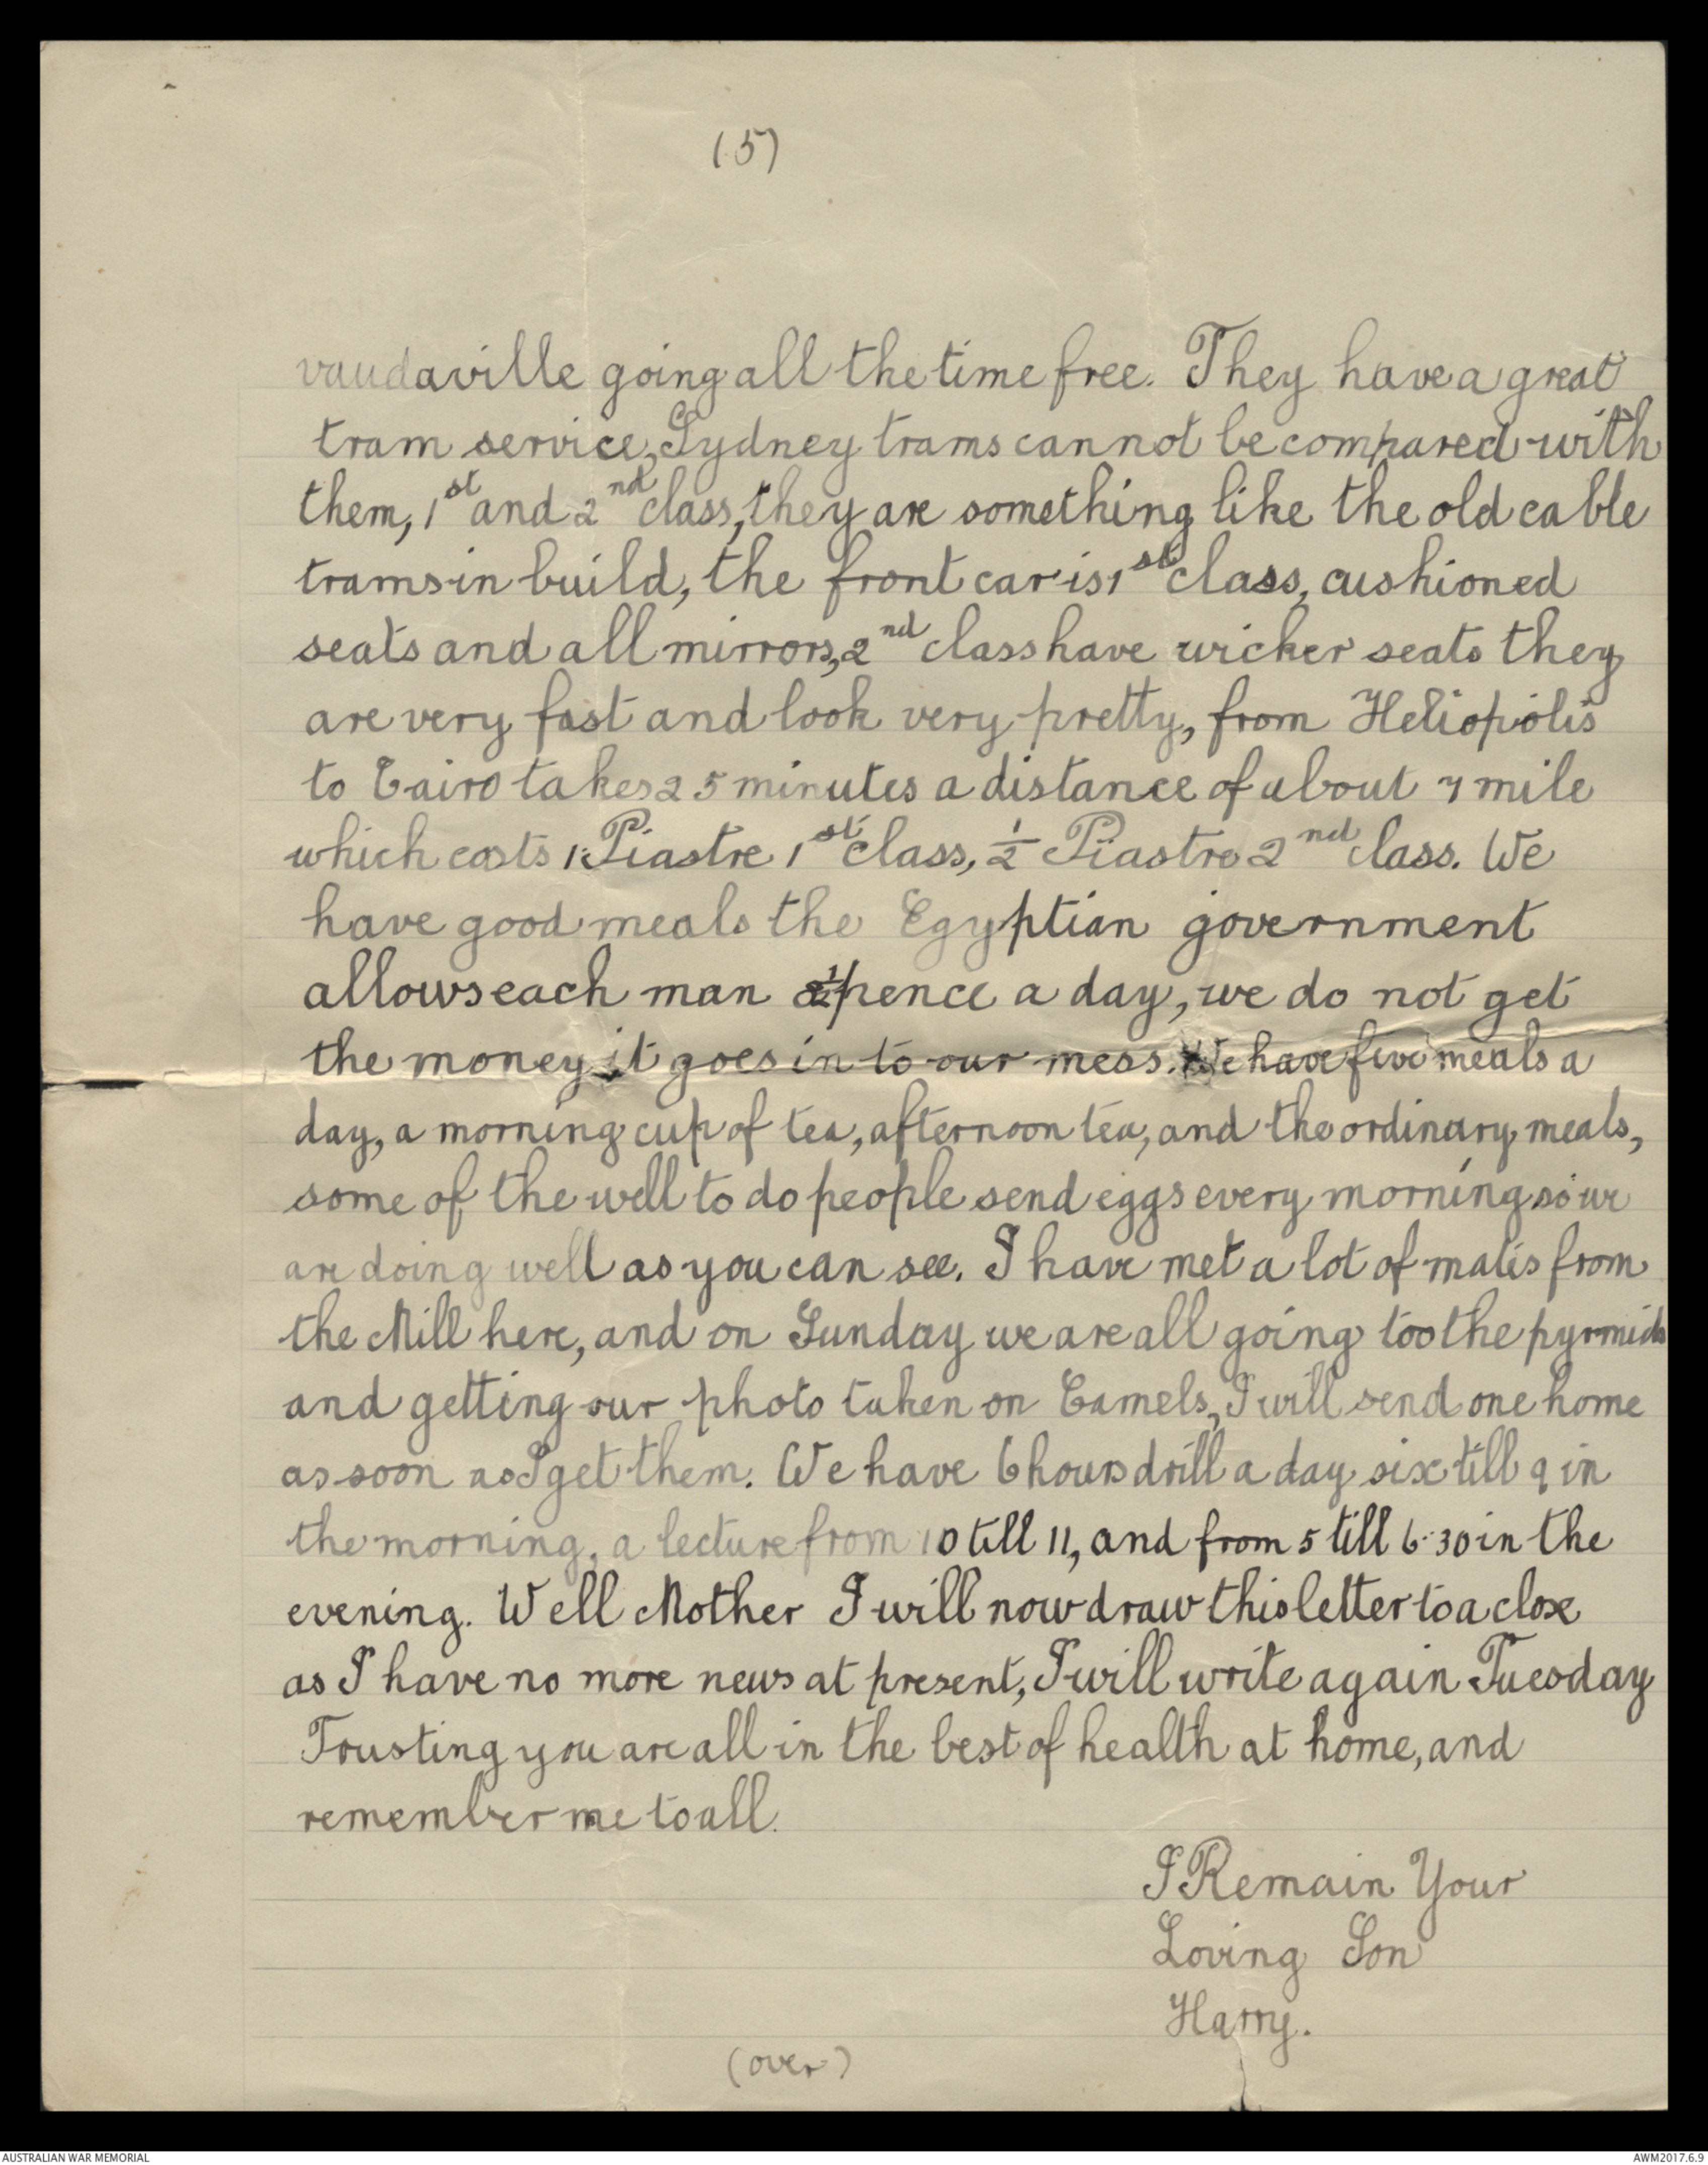 (5)
vaudaville going all the time free. They have a great
tram service, Sydney trams cannot be compared with
them, 1st and 2nd class, they are something like the old cable
trams in build, the front car is 1st class, cushioned
seats and all mirrors, 2nd class have wicker seats they
are very fast and look very pretty, from Heliopolis
to Cairo takes 25 minutes a distance of about 7 mile
which costs 1 Piastre 1st class, ½ Piastre 2nd class. We
have good meals the Egyptian government
allows each man pence a day, we do not get
the money it goes in to our mess. We have five meals a
day, a morning cup of tea, afternoon tea, and the ordinary meals,
some of the well to do people send eggs every morning so we
are doing well as you can see. I have met a lot of mates from
the Mill here, and on Sunday we are all going too the pyrmids
and getting our photo taken on Camels, I will send one home
as soon as I get them. We have 6 hours drill a day six till 9 in
the morning, a lecture from 10 till 11, and from 5 till 6.30 in the
evening. Well Mother I will now draw this letter to a close
as I have no more news at present, I will write again Tuesday
Trusting you are all in the best of health at home, and
remember me to all.
I Remain Your
Loving Son
Harry.
(over)
AUSTRALIAN WAR MEMORIAL
AWM2017.6.9